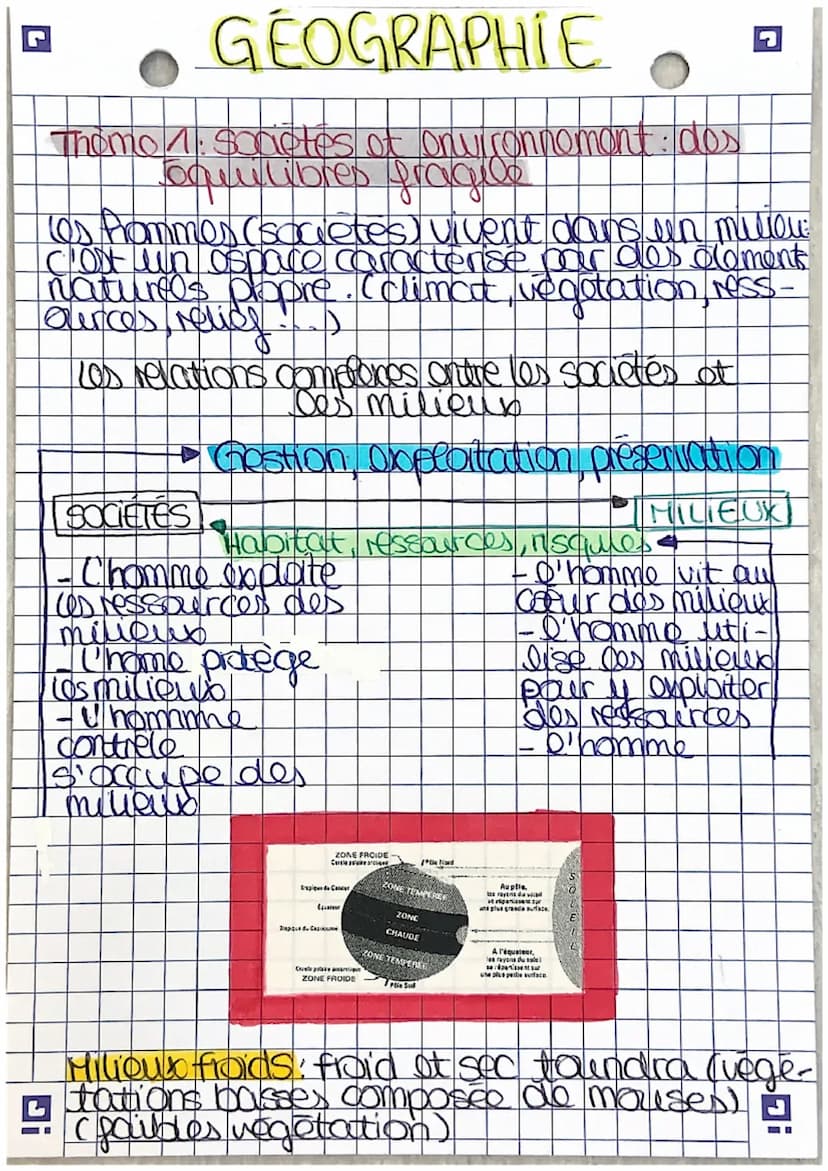 GÉOGRAPHIE
Thème 1: sociétés et environnement: des
équilibres fragile
Les hommes (sociétés) vivent dans un milieu:
c'est un espace caractérisé par des élements
naturels propre. (climat, végétation, ress-
ources, relief ...)
Les relations complexes entre les sociétés et
les milieux
Gestion, exploitation, préservation
SOCIÉTÉS
MILIEUX
Habitat, ressources, risques
- L'homme exploite
les ressources des
milieux
- L'home protège
les milieux
- L'hommme
contrele
s'occupe des
milieux
- l'homme vit au
cœur des milieux
- l'homme uti-
lise les milieux
pour y exploiter
des ressources
- l'homme
ZONE FROIDE
Cercle polaire arctique
Pôle Nord
Tropique du Cancer
Équateur
Tropique du Capricorne
ZONE TEMPÉRÉE
ZONE
CHAUDE
ZONE TEMPÉRÉE
Cercle polaire antarctique
ZONE FROIDE
Pôle Sud
Au pôle,
les rayons du soleil
se répartissent sur
une plus grande surface.
A l'équateur,
les rayons du soleil
se répartissent sur
une plus petite surface.
SOLEIL
Milieux froids: froid et sec toundra (végé-
tations basses composée de mouses)
(faibles végétation)